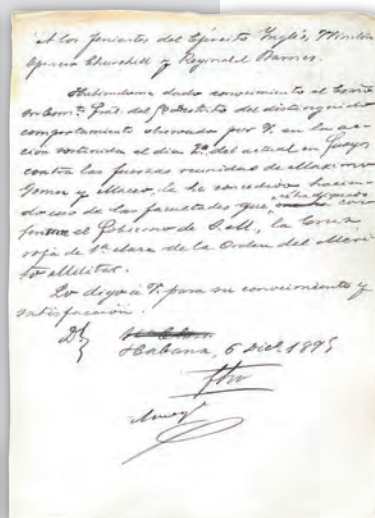 A los Tenientes del Ejército Inglés, Winston
Spencer Churchill y Reginald Barnes.
Habiéndome dado conocimiento el
Comte. Gral. del Distrito del distinguido
comportamiento observado por V. en la ac-
cion sostenida el dia 2 del actual en Guayos
contra las fuerzas reunidas de Maximo
Gomez y Maceo, le he concedido hacien-
do uso de las facultades que se ha dignado con-
el Gobierno de S.M., la Cruz
roja de 1ª clase de la Orden del Méri-
to Militar.
Lo digo á V. para su conocimiento y
satisfaccion.
Habana, 6 Dicl. 1895